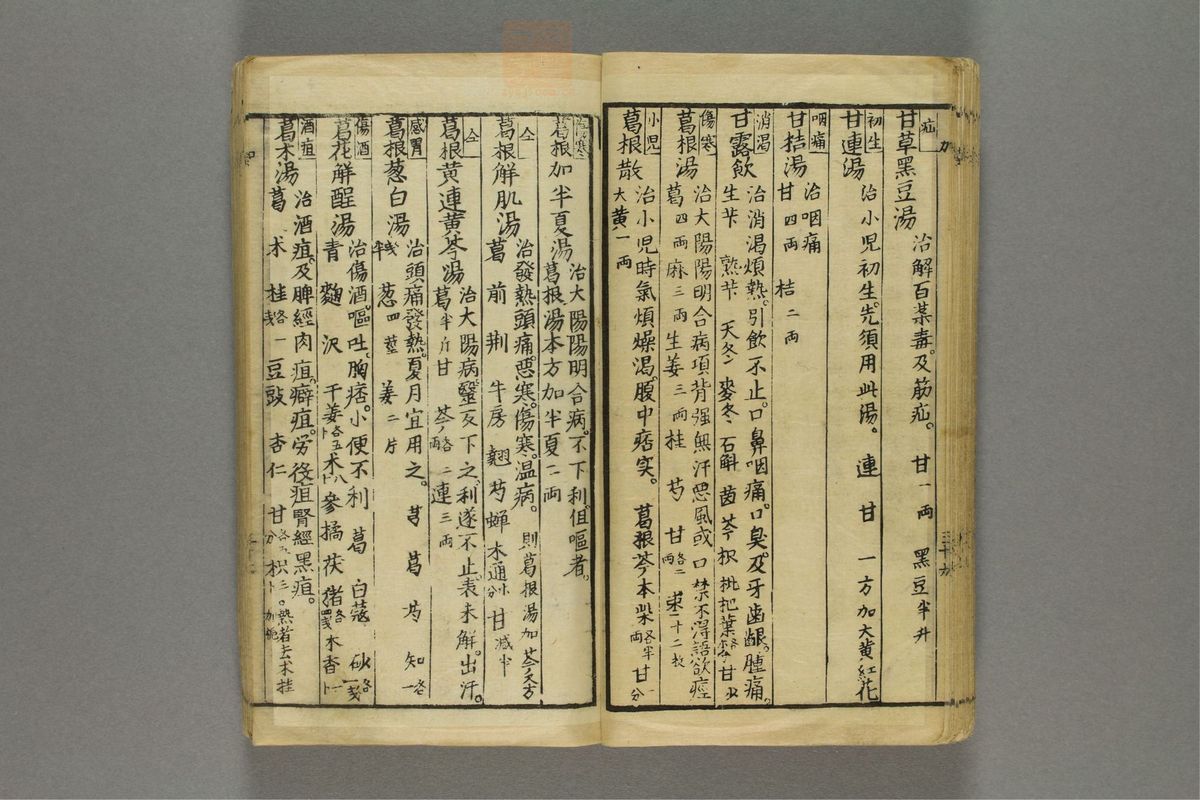 疝
甘草黑豆湯 治解百藥毒。及筋疝。 甘一両 黑豆半升
初生
甘連湯 治小児初生。先須用此湯。 連 甘 一方加大黄紅花
咽痛
甘桔湯 治咽痛
甘四両 桔二両
消渇
甘露飲 治消渇煩熱。引飲不止。口鼻咽痛。口臭。及牙歯齦。腫痛。
生芐 熟芐 天冬 麥冬 石斛 茵 芩 枳 枇杷葉 甘
傷寒
葛根湯 治大陽陽明合病項背强無汗悪風或口禁不得語欲痙
葛四両 麻三両 生姜三両 桂 芍 甘各二両 棗十二枚
小児
葛根散 治小児時氣煩燥渇。腹中痞実。 葛根 芩 本 柴各半両 甘一分
大黄一両
傷寒
葛根加半夏湯 治大陽陽明合病。不下利。但嘔者。
葛根湯本方加半夏一両
仝
葛根解肌湯 治發熱頭痛。悪寒。傷寒。温病。 則葛根湯加芩又方
葛 前 荆 牛房 翹 芍 蝉 木通 甘減半
仝
葛根黄連黄芩湯 治大陽病。醫反下之。利遂不止。表未解。出汗。
葛半斤 甘 芩各二両 連三両
感冒
葛根葱白湯 治頭痛發熱。夏月宜用之。 芎 葛 芍 知各一
戋半 葱四莖 姜二片
傷酒
葛花解酲湯 治傷酒。嘔吐。胸痞。小便不利 葛 白蔲 砂各一戋
青 麴 沢 干姜各五卜 木八卜 參 橘 茯 猪各四戋 木香一卜
酒疸
葛朮湯 治酒疸。及脾經肉疸。癖疸。労役疸腎經黒疸。
葛 朮 桂各一戋 豆豉 杏仁 甘各五分 枳三卜。熱者去朮桂